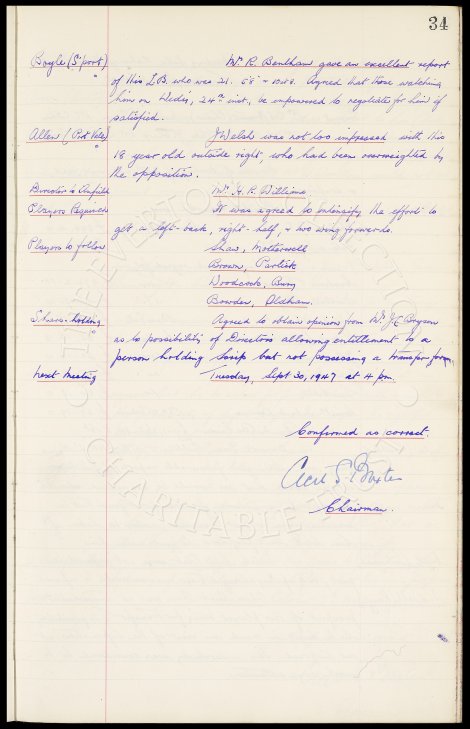 34
Boyle (S'port) Mr. R. Bentham gave an excellent report
of this L.B. who was 21. 5'8" & 10st8. Agreed that those watching
him on Weds, 24th inst, be empowered to negotiate for him if
satisfied.
Allen (Port Vale) J Welsh was not too impressed with this
18 year old outside right, who had been overweighted by
the opposition.
Director to Anfield Mr. G. R. Williams
Players Required It was agreed to intensify the effort to
get a left-back, right-half, & two wing forwards.
Players to follow Shaw, Motherwell
Brown, Partick
Woodcock, Bury
Bowden, Oldham.
Share-holding Agreed to obtain opinion from Mr J C Bryson
as to possibility of Directors allowing entitlement to a
person holding Scrip but not possessing a transfer form.
Next Meeting Tuesday, Sept 30, 1947 at 4 pm.
Confirmed as correct.
Cecil S Baxter
Chairman.
THE EVERTON
CHARITABLE TRUST